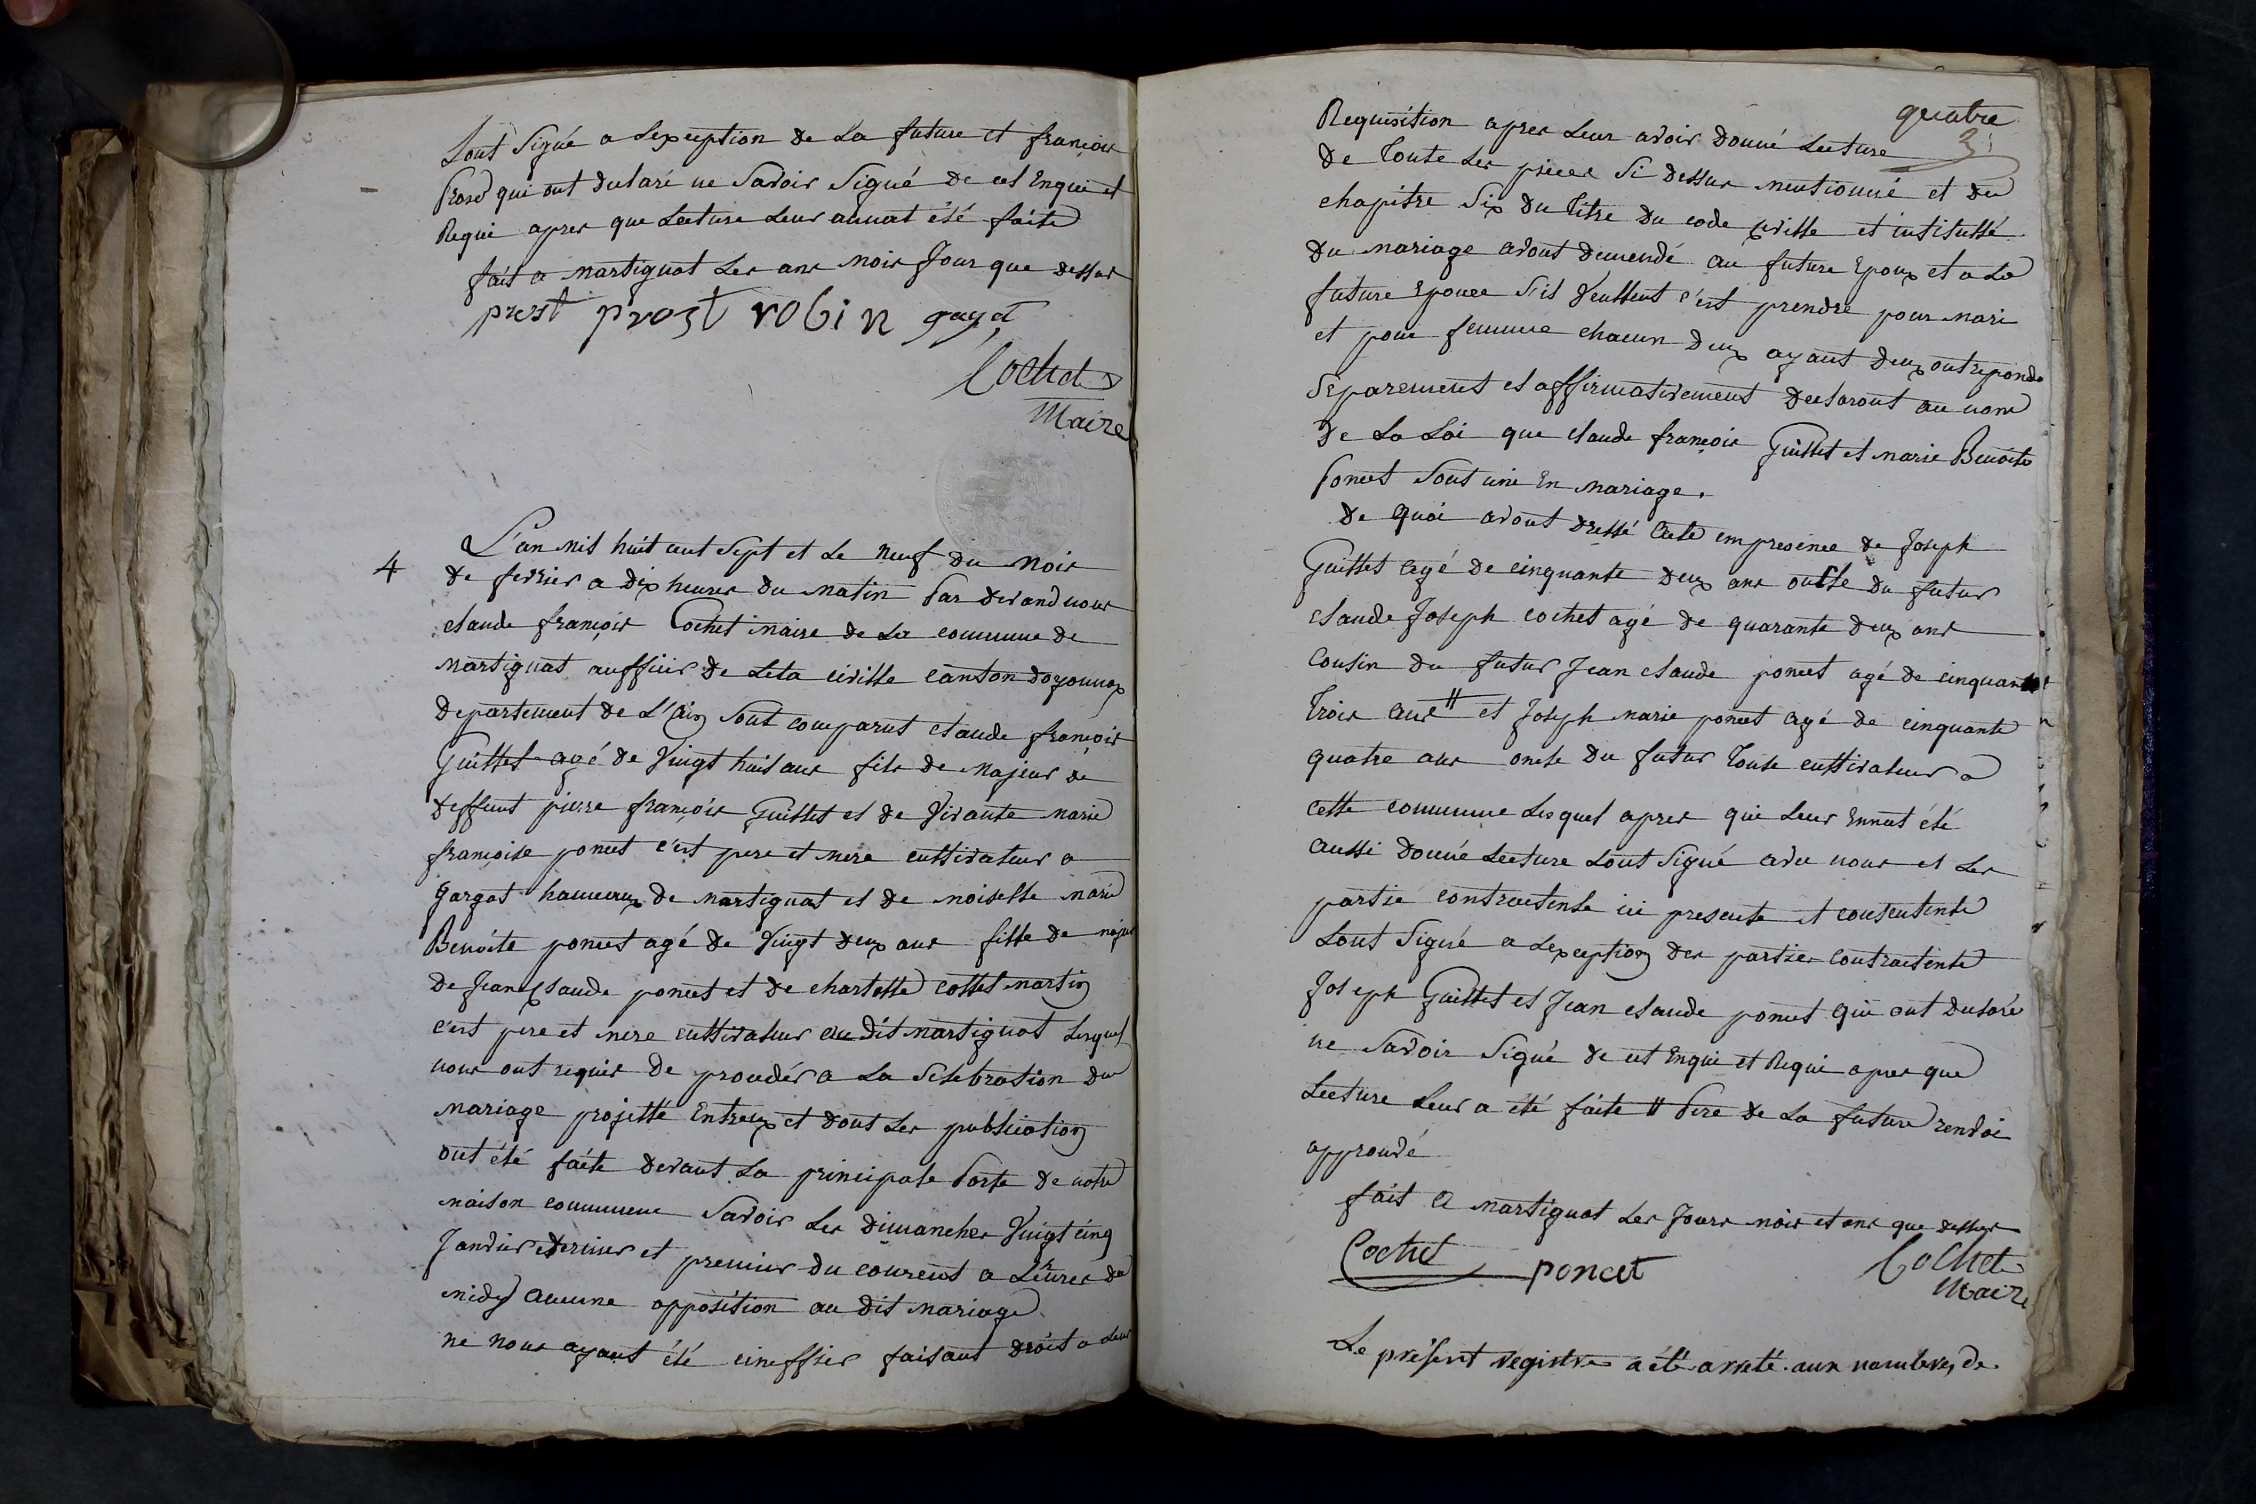 sont Signé a Lexception de La future et françois
qui ont declaré ne Savoir Signé de cet Enqui et
Requi apres que Lecture Leur aunat été faite
fait a martignat Les ans mois Jour que dessus
prost prost robin gayet
Cochet
Maire
4
L'an mil huit cent Sept et Le neuf du mois
de fevrier a dix heures du matin Par devand nous
claude françois Cochet maire de La commune de
martignat auffiier de Leta civille canton doyonnax
departement de L'ain Sont comparut claude françois
Guillet agé de Vingt huit ans fils de majeur de
deffunt pierre françois Guillet et de Vivante marie
françoise poncet c'est pere et mere cultivateur a
gargat hameaux de martignat et de moiselle marie
Benoite poncet agé de Vingt deux ans fille de majeur
de Jean Claude poncet et de charlotte collet martin
c'est pere et mere cultivateur au dit martignat Lesquel
nous ont requis de proceder a La Selebration du
mariage projetté Entreux et dont Les publication
ont été faite devant La principale Porte de notre
maison commune Savoir Les dimanches Vingt cinq
Janvier dernier et premier du courent a Leures de
midy aucune opposition au dit mariage
ne nous ayant été cineffier faisant droit a Leur
quatre
3
Requisition apres Leur avoir donné Lecture
de Toute Les pieces Si dessus mentionné et du
chapitre Six du Titre du code civille et intitullé
du mariage avont demendé au future Epoux et a La
future Epouce S'il Veullent c'est prendre pour mari
et pour femme chacun deux ayant deux ont reponde
Separement et affirmativement declaront au nom
de La Loi que claude françois Guillet et marie Benoite
Poncet Sont uni En mariage.
de quoi avont dressé acte empresence de Joseph
Guillet agé de cinquante deux ans oncle du futur
claude Joseph cochet agé de quarante deux ans
cousin du futur Jean claude poncet agé de cinquante
Trois ans " et Joseph marie poncet agé de cinquante
quatre ans oncle du futur Touts cultivateur a
cette commune Lesquel apres qui Leur Ennat été
aussi donné Lecture Lont Signé avec nous et Les
partie contractente ici presente et contentente
Lont Signé a Lexception des parties contractente
Joseph Guillet et Jean claude poncet qui ont declaré
ne Savoir Signé de cet Enqui et Requi apres que
Lecture Leur a été faite " Pere de La future renvoi
approuvé
fait a martignat Les Jours mois et ans que dessus
Cochet poncet Cochet
Maire
Le présent registre a été arreté aux nombres de